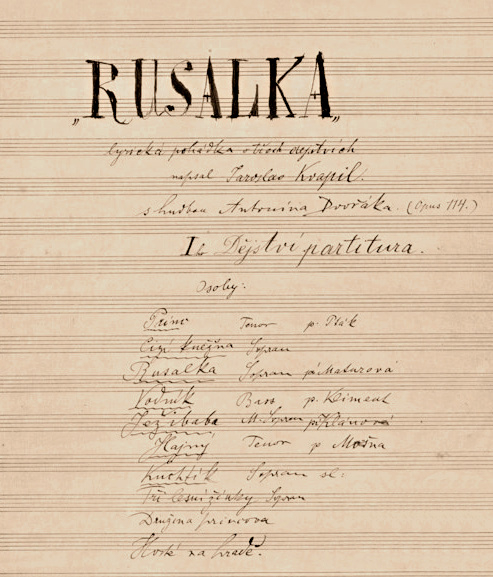 „RUSALKA„
lyrická pohádka o třech dějstvích
napsal Jaroslav Kvapil.
s hudbou Antonína Dvořáka. (Opus 114.)
I. Dějství partitura.
Osoby:
Princ Tenor p. Pták
Cizí kněžna Sopran
Rusalka Sopran Maturová
Vodník Bass p. Kliment
Ježibaba M. Sopran
Hajný Tenor p
Kuchtík Sopran sl:
Tři lesní žínky Sopran
Družina princova
Hosté na hradě.